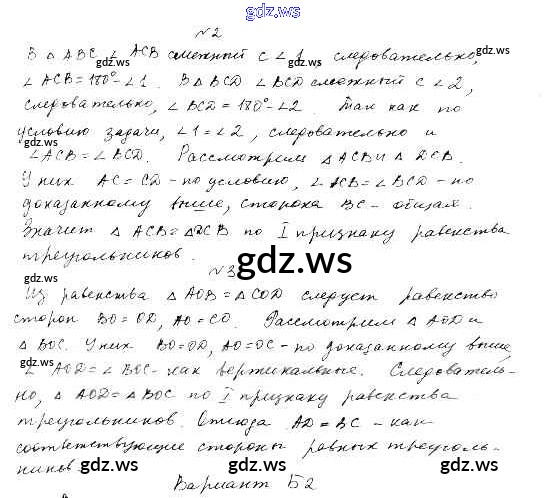 gdz.ws
№2
В △ ABC ∠ ACB смежный с ∠1 следовательно,
∠ ACB = 180° - ∠1. В △ BCD ∠ BCD смежный с ∠2,
следовательно, ∠ BCD = 180° - ∠2. Так как по
условию задачи, ∠1 = ∠2, следовательно и
gdz.ws
∠ACB = ∠BCD. Рассмотрим △ ACB и △ DCB.
У них AC = CD - по условию, ∠ ACB = ∠ BCD - по
доказанному выше, сторона BC - общая.
gdz.ws
Значит △ ACB = △DCB по I признаку равенства
треугольников.
№3
gdz.ws
gdz.ws
Из равенства △ AOB = △COD следует равенство
сторон BO = OD, AO = CO. Рассмотрим △ AOD и
△ BOC. У них BO = OD, AO = OC - по доказанному выше,
gdz.ws
∠ AOD = ∠ BOC - как вертикальные. Следователь-
но, △ AOD = △ BOC по I признаку равенства
треугольников. Отсюда AD = BC - как
соответствующие стороны равных треуголь-
ников.
gdz.ws gdz.ws gdz.ws
Вариант Б2